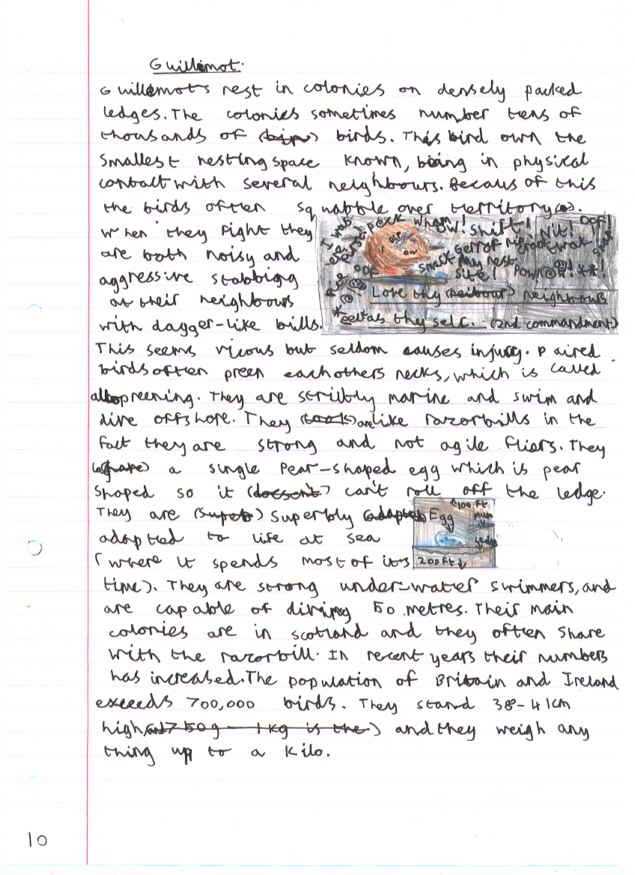 Guillemot.
Guillemots nest in colonies on densely packed
ledges. The colonies sometimes number tens of
thousands of (birp) birds. This bird own the
smallest nesting space known, being in physical
contact with several neighbours. Becaus of this
the birds often squabble over territory(s).
When they fight they
are both noisy and
aggressive stabbing
at their neighbours
with dagger-like bills.
Peck wham! OW! Shift! Nit! OOF!
Gerrof
Smack my nest
site! Pow!@@!**!
Love thy (neibour) neighbours
as thy self. (2nd commandment)
This seems vicous but seldom causes injury. Paired
birds often preen eachothers necks, which is called
allopreening. They are strictly marine and swim and
dive offshore. They (look) are like razorbills in the
fact they are strong and not agile fliers. They
a single pear-shaped egg which is pear
shaped so it (doesent) can't roll off the ledge.
They are (superb) superbly (adapted)
Egg
100ft
200ft
adapted to life at sea
(where it spends most of its
time). They are strong under-water swimmers, and
are capable of diving 50 metres. Their main
colonies are in scotland and they often share
with the razorbill. In recent years their numbers
has increased. The population of Britain and Ireland
exceeds 700,000 birds. They stand 38-41cm
high, (750g - 1kg is the) and they weigh any
thing up to a kilo.
10